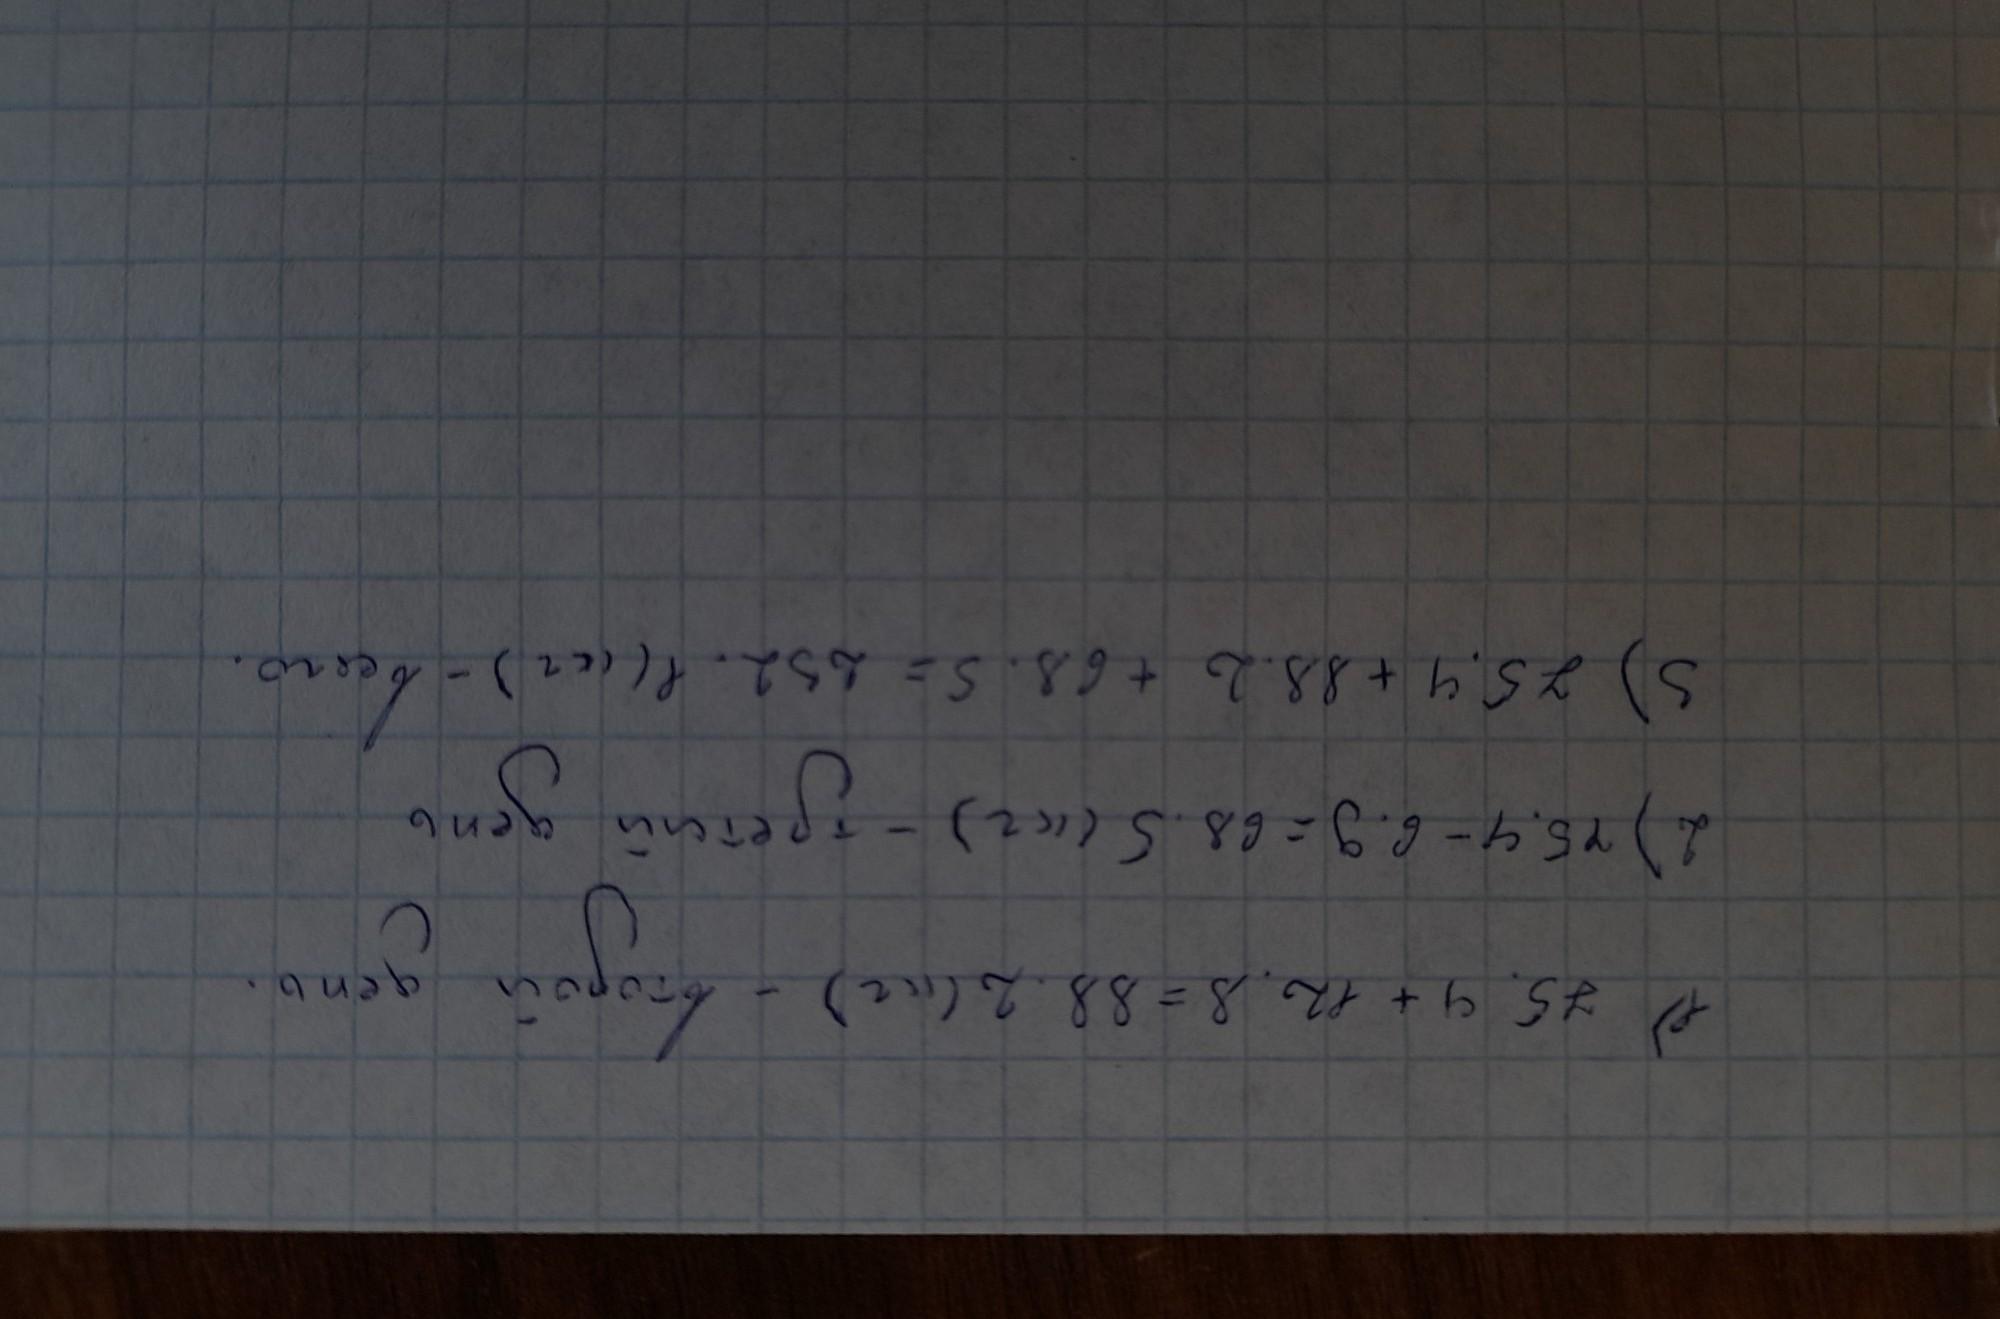 1) 75.4 + 12.8 = 88.2 (кг) - второй день.
2) 75.4 - 6.9 = 68.5 (кг) - третий день
3) 75.4 + 88.2 + 68.5 = 232.1 (кг) - всего.